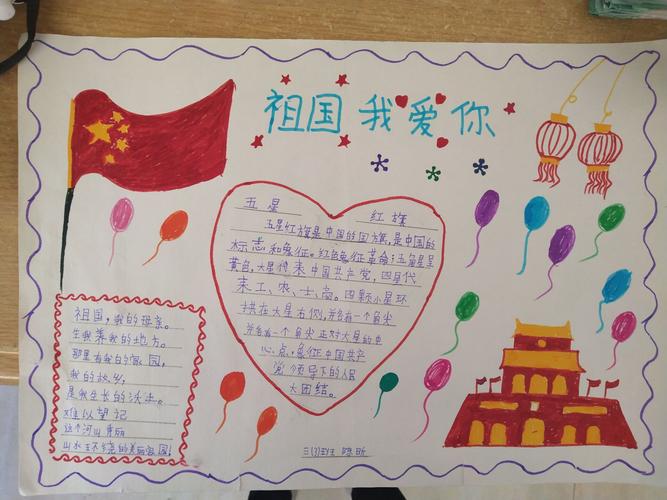 祖国我爱你
五星 红旗
五星红旗是中国的国旗,是中国的
标志和象征。红色象征革命;五角星呈
黄色,大星代表中国共产党,四星代
表工、农、士、商。四颗小星环
拱在大星右侧,并各有一个角尖
并各有一个角尖正对大星的中
心点,象征中国共产
党领导下的人民
大团结。
祖国,我的母亲。
生我养我的地方。
那里有我的家园,
我的故乡,
是我生长的沃土。
难以望记
这个河山秀丽
山水环绕的美丽家园!
三(3)班